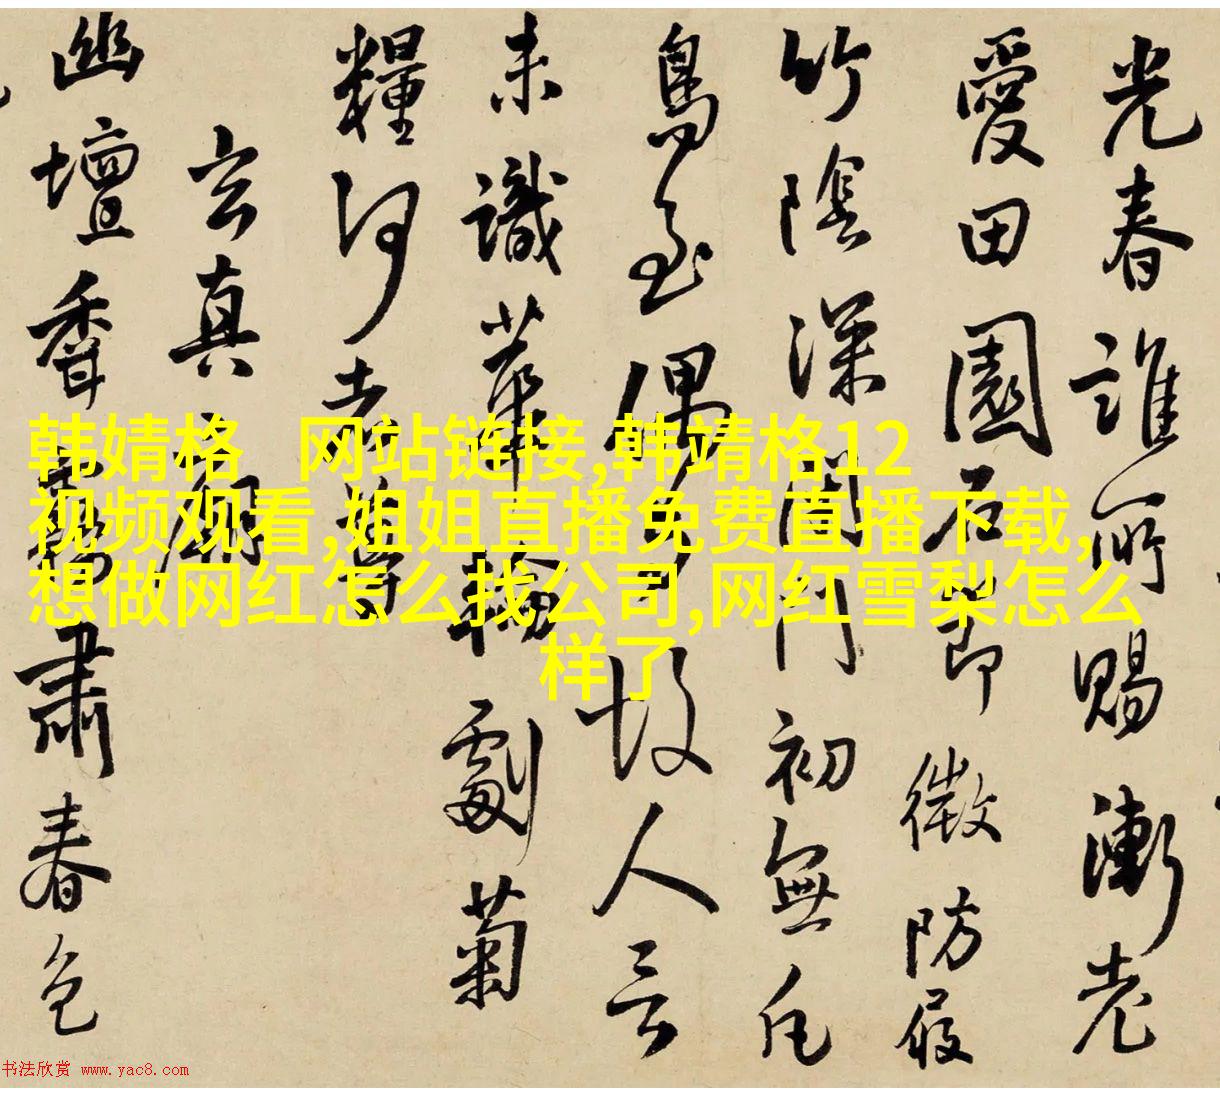 光春誰所賜漸老
愛田園石節微防屐
竹陰深閉門初無凡
鳥至偶有故人言
未識華輪劇菊
糧何太尊
玄真廟
幽壇香靄肅春色
韩婧格 网站链接,韩靖格12
视频观看,姐姐直播免费直播下载,
想做网红怎么找公司,网红雪梨怎么
样了
书法欣赏 www.yac8.com